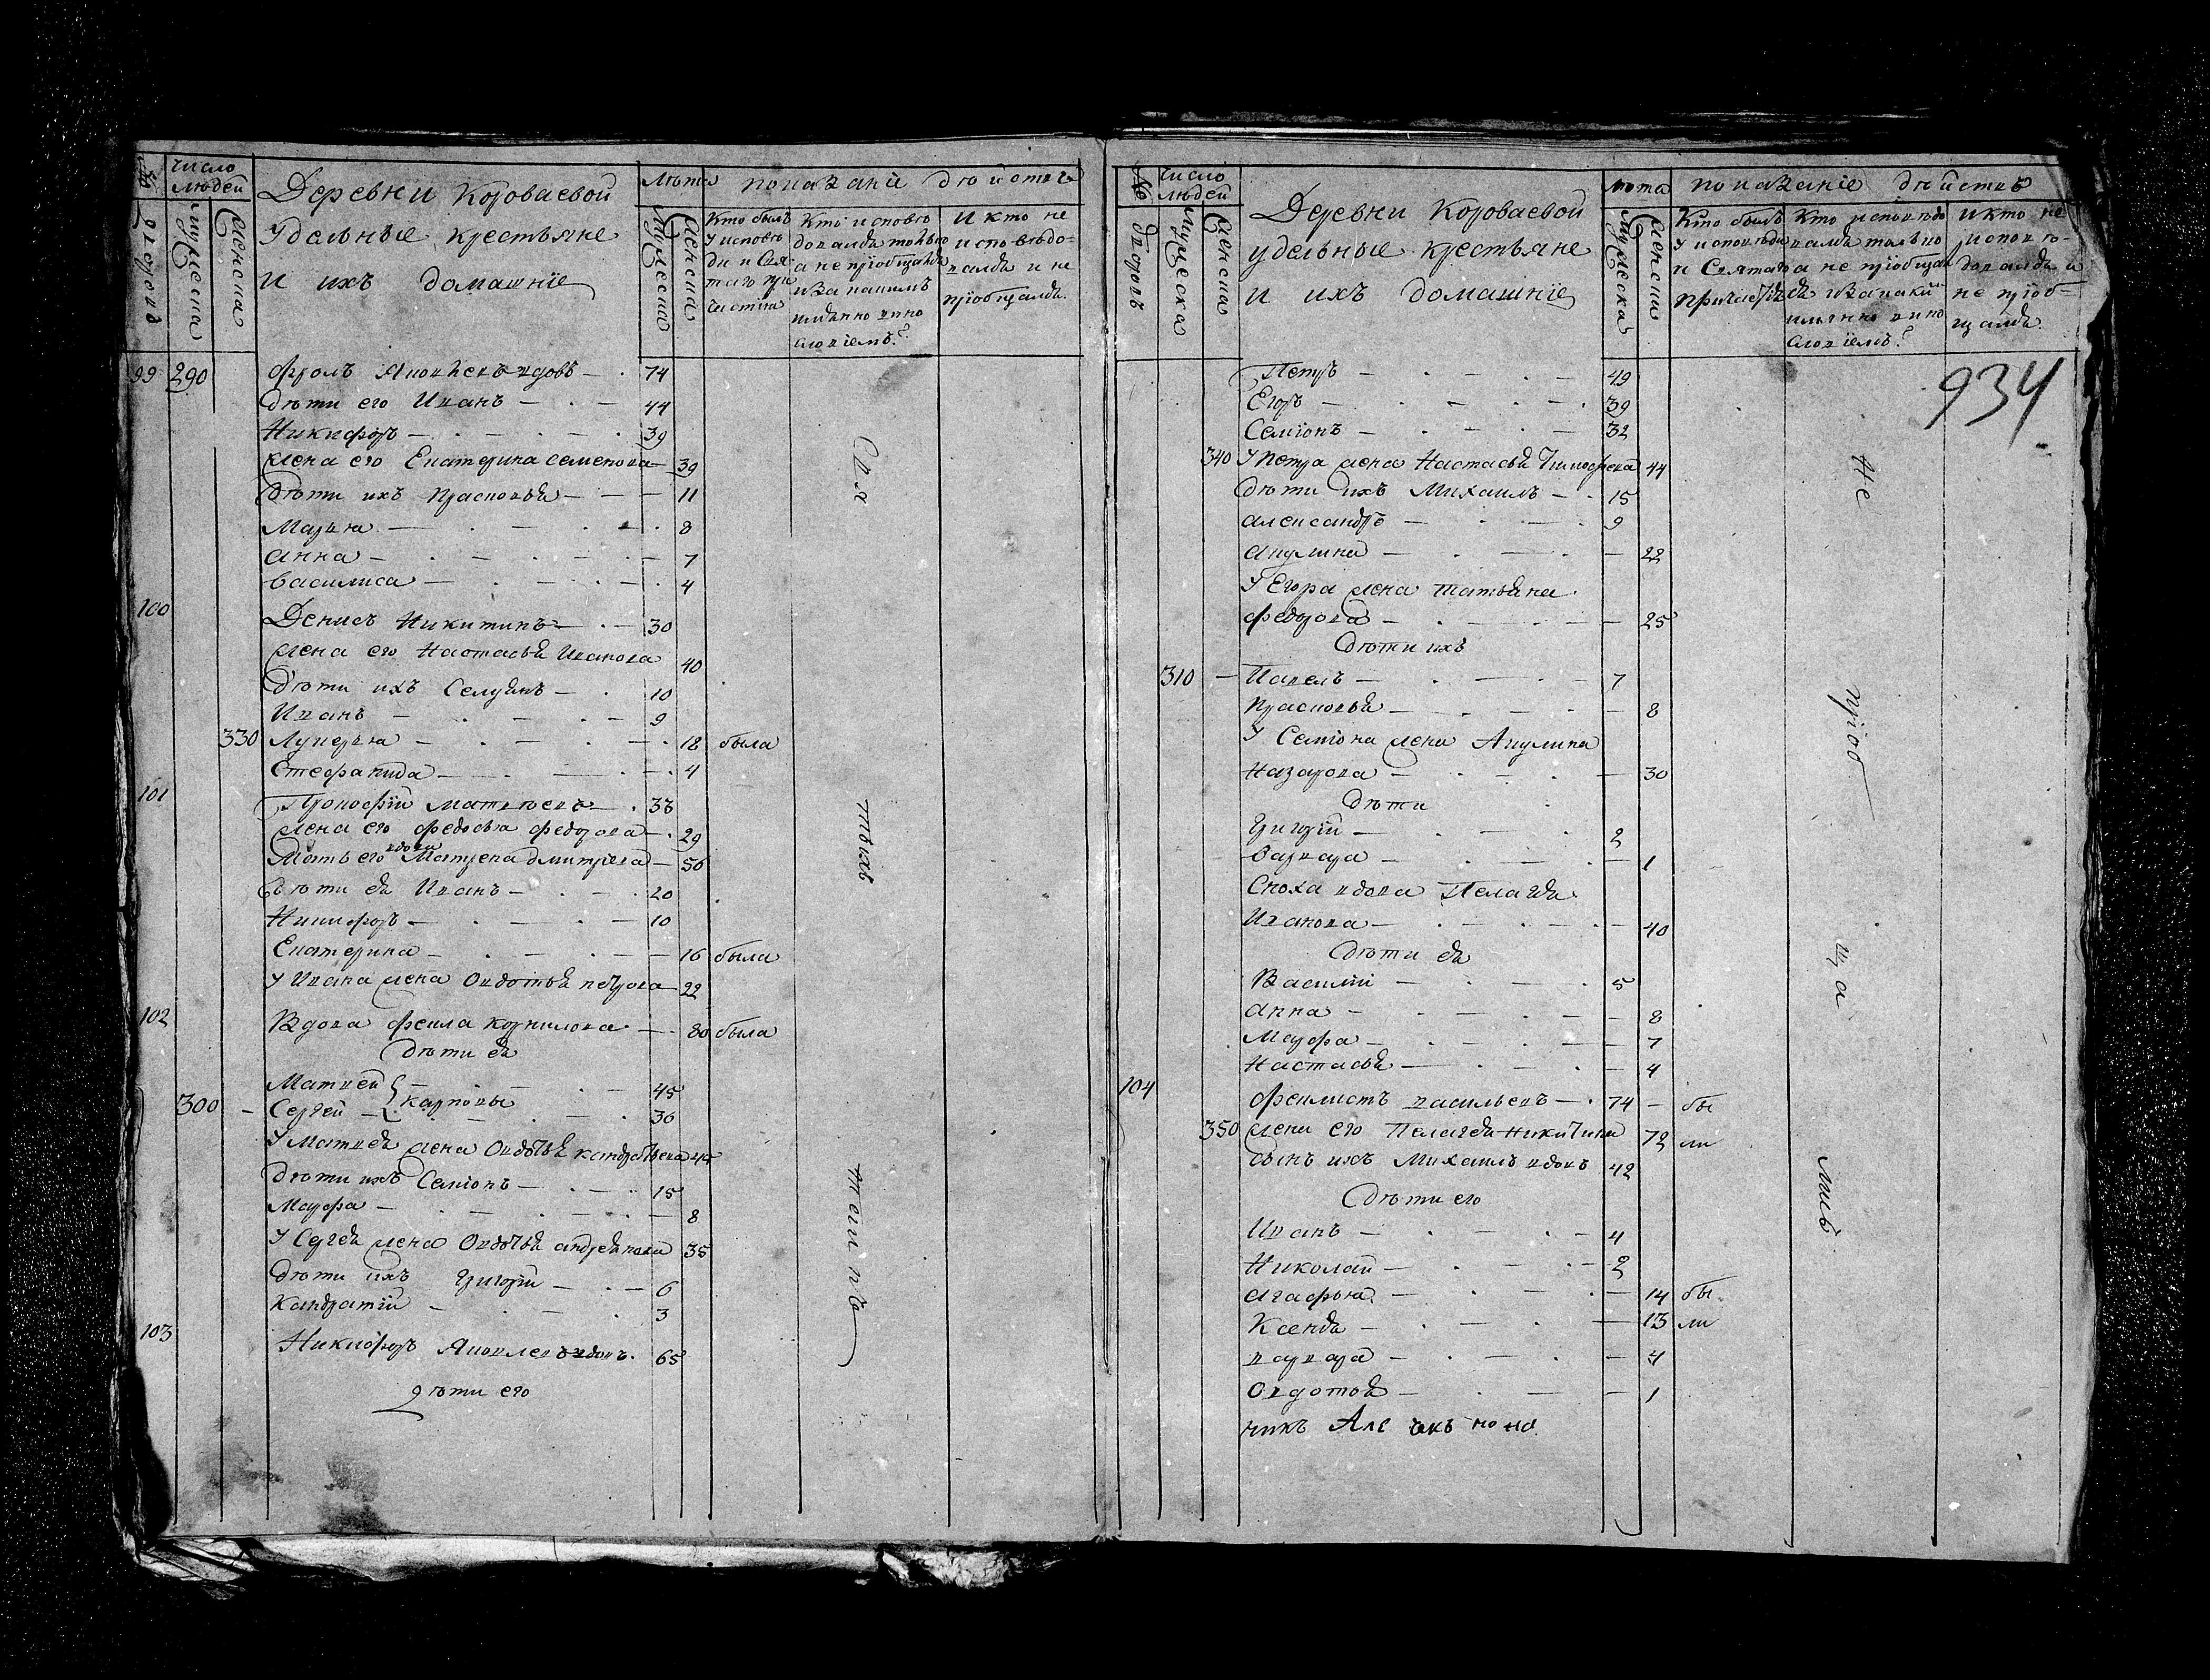 число
людей
Деревни Короваевой
Удельные крестьяне
и ихъ домашніе
Лѣта
показаніе
мужеска
женска
Кто былъ
у исповѣ
ди и Свя
таго при
частія
Кто исповѣ
довался только
а не пріобщался
и за какимъ
имянно вино
словіемъ?
И кто не
исповѣдо-
вался и не
пріобщался.
99 290 Фролъ Яковлевъ вдовъ — 74
Дѣти его Иванъ — 44
Никифоръ — 39
Жена его Екатерина Семенова — 39
Дѣти ихъ Прасковья — 11
Марья — 8
Анна — 7
Василиса — 4
100
Денисъ Никитинъ — 30
Жена его Настасья Иванова 40
Дѣти ихъ — 10
Иванъ — 9
330 Лукерья — 18 была
Стефанида — 4
101
Прокофій Матвѣевъ — 33
Жена его Федосья Федорова — 29
вдова
Мать его Матрена Дмитріева — 56
Дѣти ея Иванъ — 20
Никифоръ — 10
Екатерина — 16 была
У Ивана жена Овдотья Петрова — 22
102 Вдова Фекла Корнилова — 80 была
Дѣти ея
Матвей — 45
Карповы
300 — Сергей — 36
У Матвея жена Овдотья Кандратьева 45
Дѣти ихъ Семіонъ — 15
Марфа — 8
У Сергея жена Овдотья Андреянова 35
Дѣти ихъ Григорій — 6
Кандратій — 3
103
Никифоръ Яковлевъ вдовъ 65
Дѣти его
№
дворовъ
число
людей
мужеска
женска
Деревни Короваевой
удельные крестьяне
и ихъ домашніе
лѣта
показаніе
мужеска
женска
Кто былъ
у исповѣди
и Святаго
причастія
Кто исповѣдо
вался только
а не пріобщал
ся и за каким
имянно вино
словіемъ?
и кто не
исповѣ-
довался и
не пріоб-
щался.
934
Петръ — 49
Егоръ — 39
Семіонъ — 32
340 У Петра жена Настасья Тимофеева 44
Дѣти ихъ Михаилъ — 15
Александръ — 9
Акулина — 22
У Егора жена Татьяна
Федорова — 25
Дѣти ихъ
310 — Павелъ — 7
Прасковья — 8
У Семіона жена Акулина
Назарова — 30
Дѣти
Григорій — 2
Варвара — 1
Сноха вдова Пелагея
Иванова — 40
Дѣти ея
Василій — 5
Анна — 8
Марфа — 7
Настасья — 4
104
Феклистъ Васильевъ — 74 — бы
350 Жена его Пелагея Никитина 72 ли
Сынъ ихъ Михаилъ вдовъ 42
Дѣти его
Иванъ — 4
Николай — 2
Агафья — 14 бы
Ксенья — 13 ли
Варвара — 4
Овдотья — 1
никъ Але
не
пріоб
ща
лись